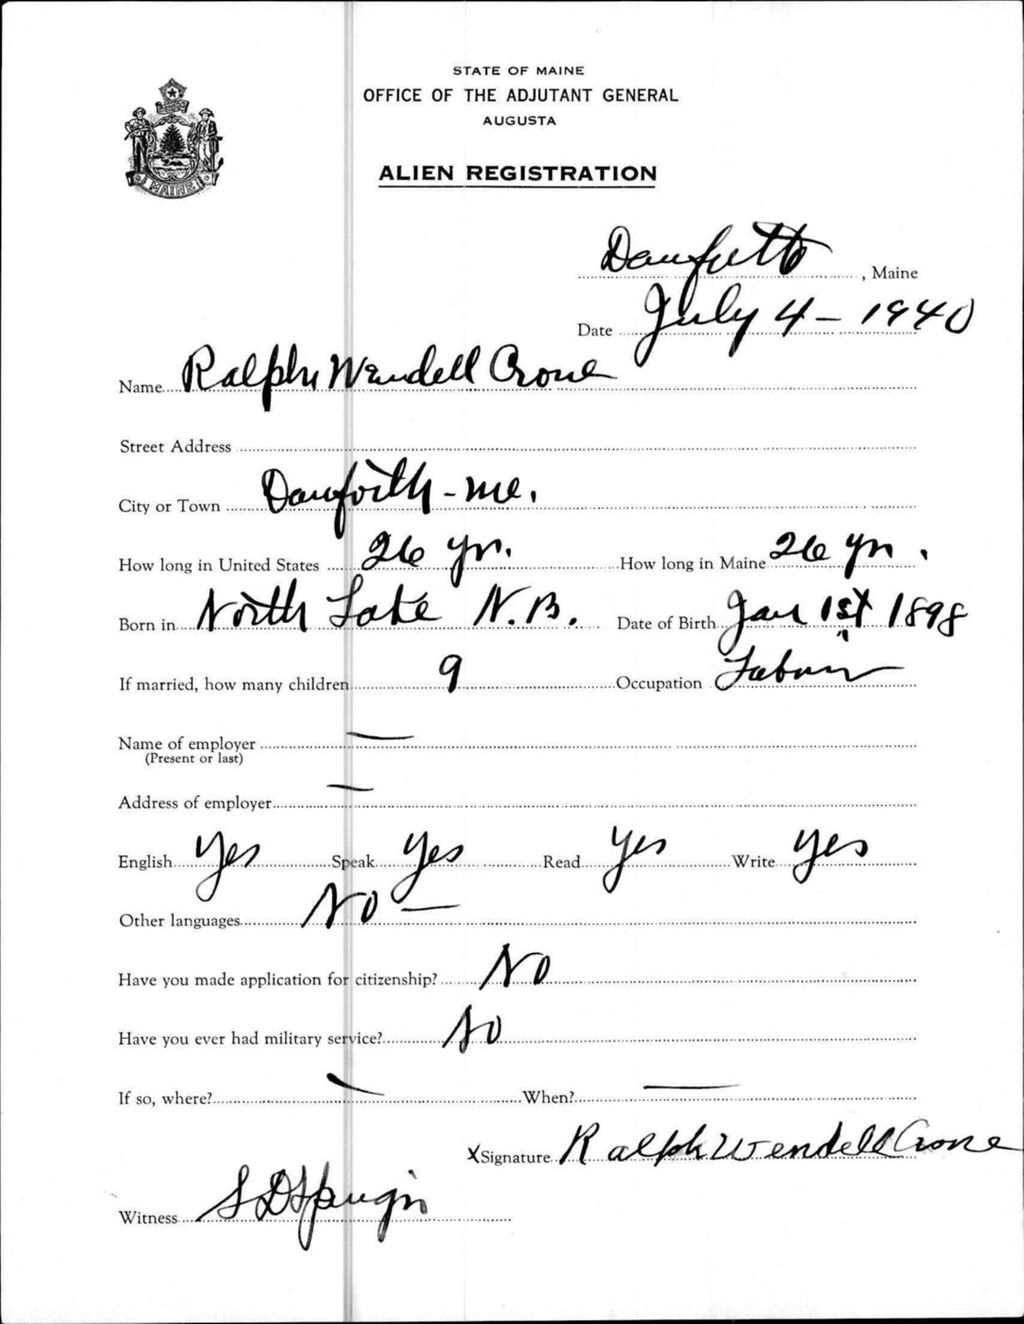 STATE OF MAINE
OFFICE OF THE ADJUTANT GENERAL
AUGUSTA
ALIEN REGISTRATION
MAINE
Danforth, Maine
Date July 4 - 1940
Name Ralph Wendell Crone
Street Address
City or Town Danforth - Me.
How long in United States 26 yr. How long in Maine 26 yr.
Born in North Lake N.B. Date of Birth Jan 1st 1898
If married, how many children 9 Occupation
Name of employer —
(Present or last)
Address of employer —
English Yes Speak Yes Read Yes Write Yes
Other languages No —
Have you made application for citizenship? No
Have you ever had military service? No
If so, where? — When? —
X Signature Ralph Wendell Crone
Witness